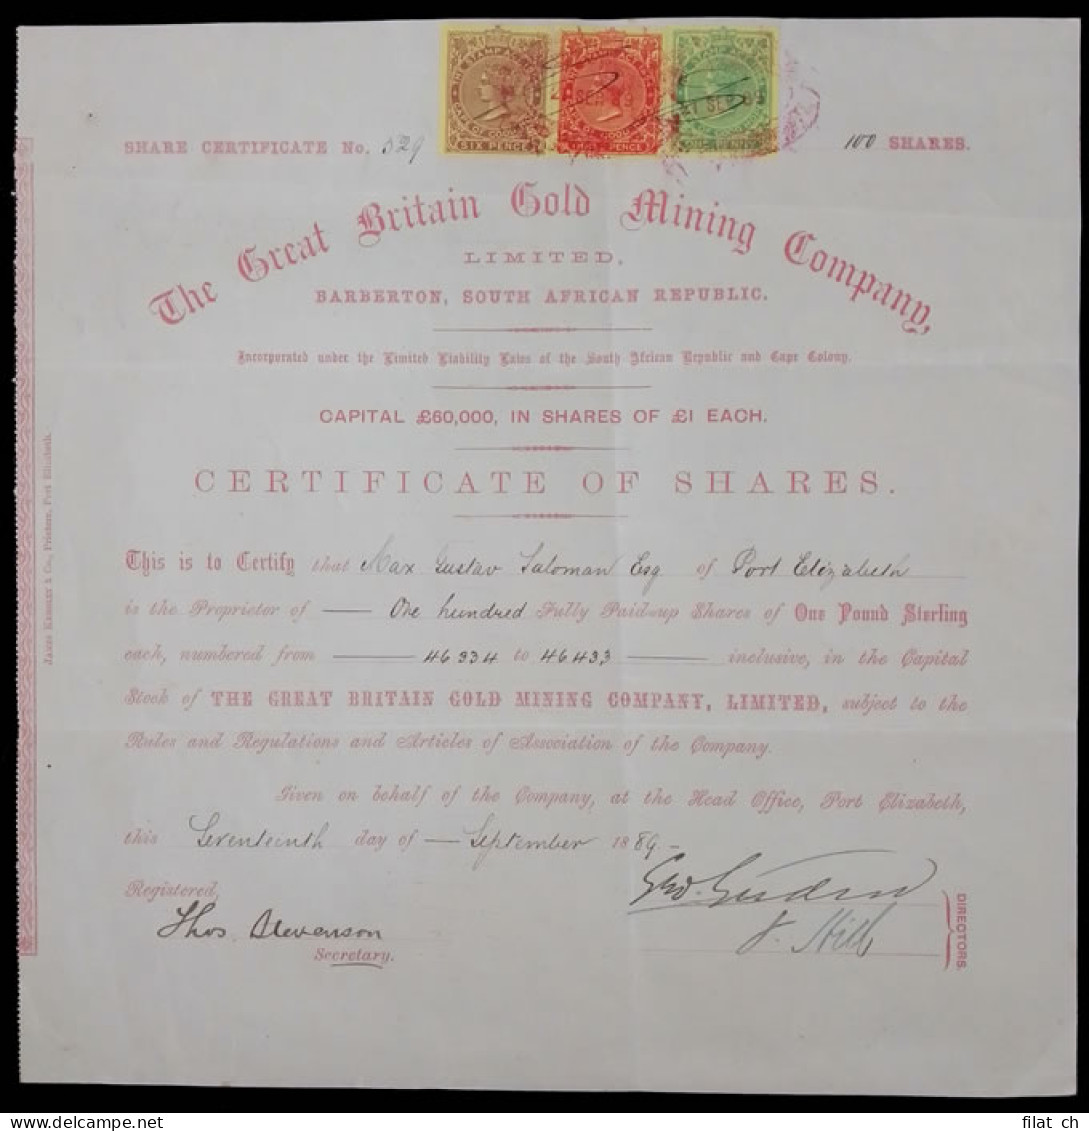 THE STAMP ACT
CAPE OF GOOD HOPE
SIX PENCE
THE STAMP ACT
CAPE OF GOOD HOPE
PENCE
21 SEP 89
STAMP
PENNY
SHARE CERTIFICATE No. 529
100 SHARES.
The Great Britain Gold Mining Company,
LIMITED,
BARBERTON, SOUTH AFRICAN REPUBLIC.
Incorporated under the Limited Liability Laws of the South African Republic and Cape Colony.
CAPITAL £60,000, IN SHARES OF £1 EACH.
CERTIFICATE OF SHARES.
This is to Certify that Max Gustav Saloman Esq of Port Elizabeth
is the Proprietor of One hundred Fully Paid-up Shares of One Pound Sterling
each, numbered from 46334 to 46433 inclusive, in the Capital
Stock of THE GREAT BRITAIN GOLD MINING COMPANY, LIMITED, subject to the
Rules and Regulations and Articles of Association of the Company.
Given on behalf of the Company, at the Head Office, Port Elizabeth,
this Seventeenth day of September 1889.
Registered,
Thos. Stevenson
Secretary.
Geo.
Hill
DIRECTORS.
JAMES KEMSLEY & Co., Printers, Port Elizabeth.
filat ch